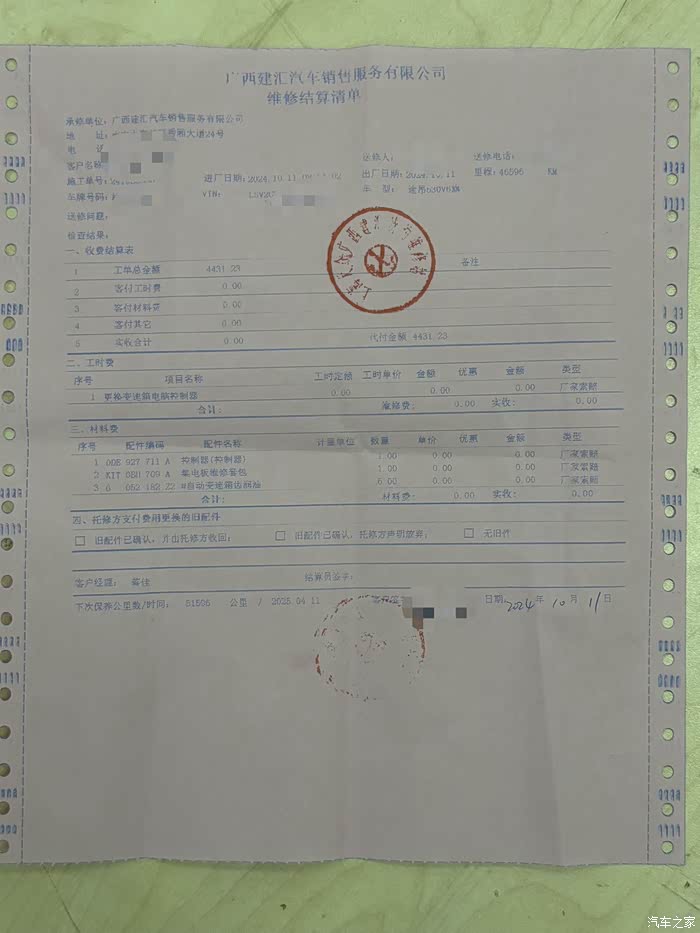 广西建汇汽车销售服务有限公司
维修结算清单
承修单位: 广西建汇汽车销售服务有限公司
地 址: 大道24号
电 话
客户名称 送修人: 送修电话:
施工单号: 进厂日期: 2024.10.11 出厂日期: 2024.10.11 里程: 46596 KM
车牌号码: VIN: LSV2 车 型: 途昂530V6
送修问题:
检查结果:
一、收费结算表
1 工单总金额 4431.23 备注
2 客付工时费 0.00
3 客付材料费 0.00
4 客付其它 0.00
5 实收合计 0.00 代付金额 4431.23
二、工时费
序号 项目名称 工时定额 工时单价 金额 优惠 金额 类型
1 更换变速箱电脑控制器 0.00 0.00 0.00 厂家索赔
合计: 维修费: 0.00 实收: 0.00
三、材料费
序号 配件编码 配件名称 计量单位 数量 单价 优惠 金额 类型
1 0DE 927 711 A 控制器(控制器) 1.00 0.00 0.00 厂家索赔
2 KIT 0BH 709 A 集电板维修套包 1.00 0.00 0.00 厂家索赔
3 G 052 182 Z2 #自动变速箱齿润油 6.00 0.00 0.00 厂家索赔
合计: 材料费: 0.00 实收: 0.00
四、托修方支付费用更换的旧配件
旧配件已确认,并由托修方收回; 旧配件已确认,托修方声明放弃; 无旧件
客户经理: 蒋佳 结算员签字:
下次保养公里数/时间: 51596 公里 / 2025.04.11 客户签 日期: 2024 年 10 月 11 日
汽车之家